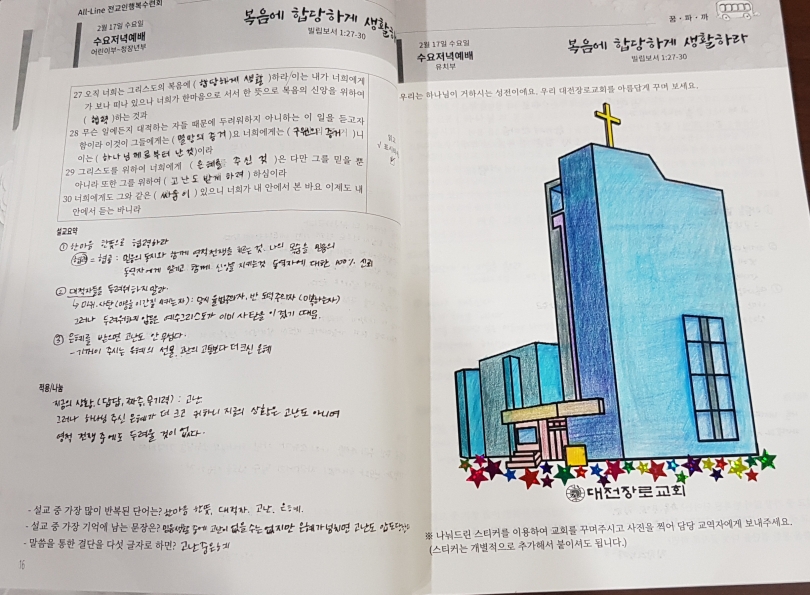 All-Line 전교인행복수련회
2월 17일 수요일
수요저녁예배
어린이부~청장년부
복음에 합당하게 생활하
빌립보서 1:27-30
27 오직 너희는 그리스도의 복음에 ( 합당하게 생활 )하라 이는 내가 너희에게
가 보나 떠나 있으나 너희가 한마음으로 서서 한 뜻으로 복음의 신앙을 위하여
( 협력 )하는 것과
28 무슨 일에든지 대적하는 자들 때문에 두려워하지 아니하는 이 일을 듣고자
함이라 이것이 그들에게는 ( 멸망의 증거 )요 너희에게는 ( 구원의 증거 )니
이는 ( 하나님께로부터 난 것 )이라
29 그리스도를 위하여 너희에게 ( 은혜를 주신 것 )은 다만 그를 믿을 뿐
아니라 또한 그를 위하여 ( 고난도 받게 하려 ) 하심이라
30 너희에게도 그와 같은 ( 싸움이 ) 있으니 너희가 내 안에서 본 바요 이제도 내
안에서 듣는 바니라
설교요약
① 한마음 한뜻으로 협력하라
협력 = 협공 : 믿음의 동지와 함께 영적전쟁을 하는 것. 나의 목숨을 믿음의
동역자에게 맡기고 함께 신앙을 지키는것 동역자에 대한 100% 신뢰
② 대적자들을 두려워하지 말라.
그러나 두려워하지 않음은 예수그리스도가 이미 사탄을 이겼기 때문.
③ 은혜를 받으면 고난도 안 무섭다.
- 기꺼이 주시는 은혜의 선물. 고난의 고통보다 더 크신 은혜
적용/나눔
지금의 상황, (답답, 짜증, 무기력) : 고난
그러나 하나님 주신 은혜가 더 크고 귀하니 지금의 상황은 고난도 아니며
영적 전쟁 중에도 두려울 것이 없다.
- 설교 중 가장 많이 반복된 단어는? 한마음 한뜻, 대적자, 고난, 은혜.
- 설교 중 가장 기억에 남는 문장은? 믿음생활 중에 고난이 없을 수는 없지만 은혜가 넘치면 고난도
- 말씀을 통한 결단을 다섯 글자로 하면? 고난 은혜
16
꿈·하·까
2월 17일 수요일
수요저녁예배
유치부
복음에 합당하게 생활하라
빌립보서 1:27-30
우리는 하나님이 거하시는 성전이에요. 우리 대전장로교회를 아름답게 꾸며 보세요.
대전장로교회
※ 나눠드린 스티커를 이용하여 교회를 꾸며주시고 사진을 찍어 담당 교역자에게 보내주세요.
(스티커는 개별적으로 추가해서 붙이셔도 됩니다.)